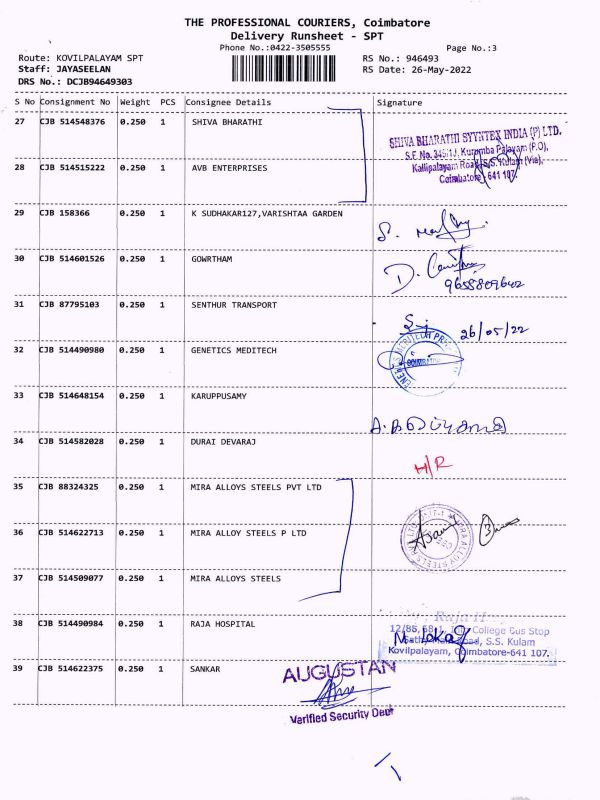 THE PROFESSIONAL COURIERS, Coimbatore
Delivery Runsheet - SPT
Phone No.:0422-3505555 Page No.:3
Route: KOVILPALAYAM SPT RS No.: 946493
Staff: JAYASEELAN RS Date: 26-May-2022
DRS No.: DCJB94649303
S No Consignment No Weight PCS Consignee Details Signature
27 CJB 514548376 0.250 1 SHIVA BHARATHI
SHIVA BHARATHI SYYNTEX INDIA (P) LTD.
S.F. No. 345/1, Kurumba Palayam (P.O),
Kalipalayam Road, S.S. Kulam (Via),
Coimbatore - 641 107.
28 CJB 514515222 0.250 1 AVB ENTERPRISES
29 CJB 158366 0.250 1 K SUDHAKAR127,VARISHTAA GARDEN
30 CJB 514601526 0.250 1 GOWRTHAM
9655809602
31 CJB 87795103 0.250 1 SENTHUR TRANSPORT
26/05/22
32 CJB 514490980 0.250 1 GENETICS MEDITECH
33 CJB 514648154 0.250 1 KARUPPUSAMY
34 CJB 514582028 0.250 1 DURAI DEVARAJ
H/R
35 CJB 88324325 0.250 1 MIRA ALLOYS STEELS PVT LTD
36 CJB 514622713 0.250 1 MIRA ALLOY STEELS P LTD
37 CJB 514509077 0.250 1 MIRA ALLOYS STEELS
38 CJB 514490984 0.250 1 RAJA HOSPITAL
Raja H
College Bus Stop
Road, S.S. Kulam
Kovilpalayam, Coimbatore-641 107.
39 CJB 514622375 0.250 1 SANKAR
AUGUSTAN
Verified Security Dept